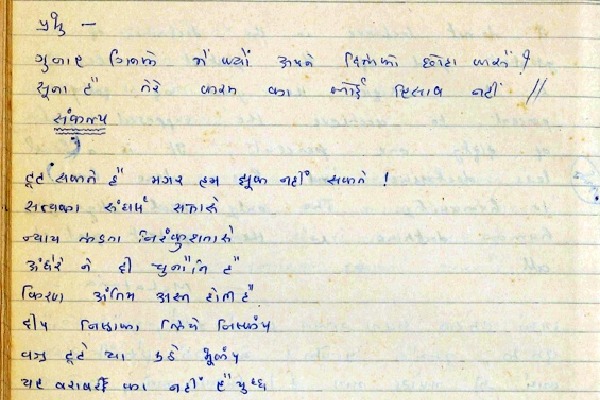 प्रभु —
गुनाह गिनके मैं क्यों अपने दिलको छोटा करुँ ?
सूना है तेरे करम का कोई हिसाब नहीं //
संकल्प
टूट सकते है मगर हम झूक नहीं सकते !
सत्यका संघर्ष सत्तासे
न्याय लडता निरंकुशतासे
अंधेरे ने दी चुनौति है
किरण अंतिम अस्त होति है
दीप निष्ठाका लिये निष्कंप
वज्र टूटे या उठे भूकंप
यह बराबरी का नहीं है युध्ध